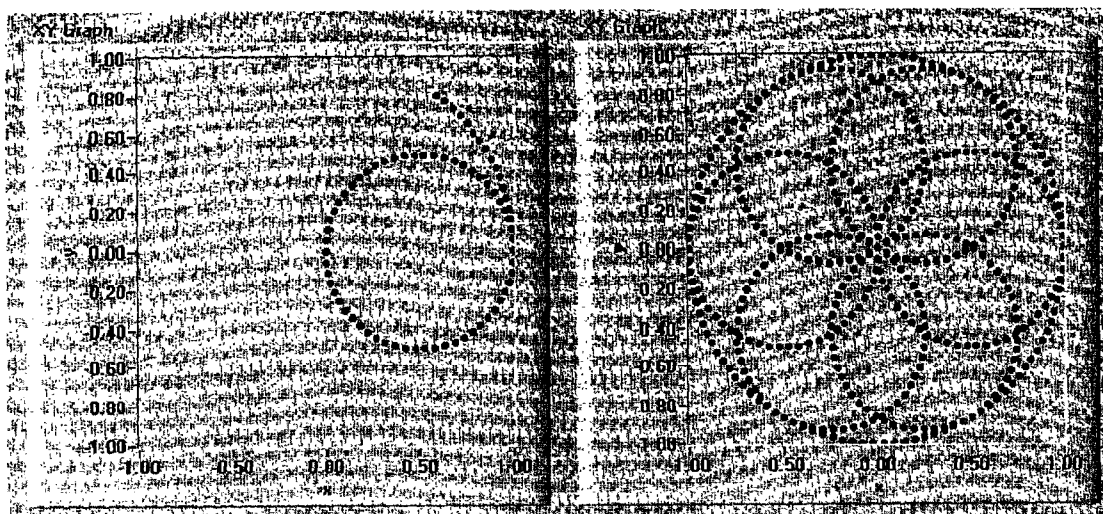 XY Graph
1.00
0.80
0.60
0.40
0.20
0.00
0.20
0.40
0.60
0.80
1.00
1.00 0.50 0.00 0.50 1.00
x
XY Graph
1.00
0.80
0.60
0.40
0.20
0.00
0.20
0.40
0.60
0.80
1.00
1.00 0.50 0.00 0.50 1.00